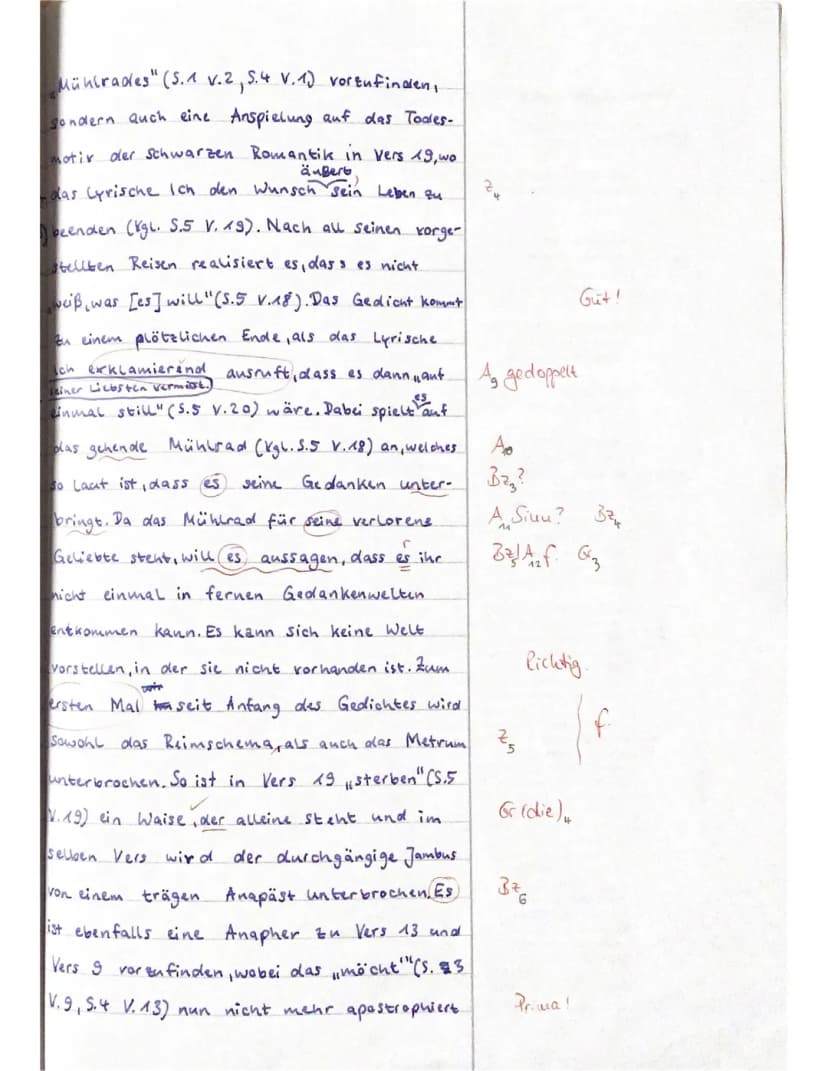 „Mühlrades" (S.1 V.2, S.4 V.1) vorzufinden,
sondern auch eine Anspielung auf das Todes-
motiv der Schwarzen Romantik in Vers 19, wo
äußert,
das Lyrische Ich den Wunsch sein Leben zu Z4
beenden (Vgl. S.5 V.19). Nach all seinen vorge-
stellten Reisen realisiert es, dass es nicht
„weiß, was [es] will" (S.5 V.18). Das Gedicht kommt Gut!
zu einem plötzlichen Ende, als das Lyrische
Ich exklamierend ausruft, dass es dann „auf A9 gedoppelt
seiner Liebsten vermisst.
es
einmal still" (S.5 V.20) wäre. Dabei spielt auf
das gehende Mühlrad (Vgl. S.5 V.18) an, welches A10
so laut ist, dass es seine Gedanken unter- Bz3?
bringt. Da das Mühlrad für seine verlorene A11 Sinn? Bz4
Geliebte steht, will es aussagen, dass es ihr Bz5/A12 f. Gr3
nicht einmal in fernen Gedankenwelten
entkommen kann. Es kann sich keine Welt
vorstellen, in der sie nicht vorhanden ist. Zum Richtig.
ersten Mal seit Anfang des Gedichtes wird f.
sowohl das Reimschema, als auch das Metrum Z5
unterbrochen. So ist in Vers 19 „sterben" (S.5
V.19) ein Waise, der alleine steht und im Gr (die)4
selben Vers wird der durchgängige Jambus
von einem trägen Anapäst unterbrochen. Es Bz6
ist ebenfalls eine Anapher zu Vers 13 und
Vers 9 vorzufinden, wobei das „möcht'" (S. 3
V.9, S.4 V.13) nun nicht mehr apostrophiert Prima!